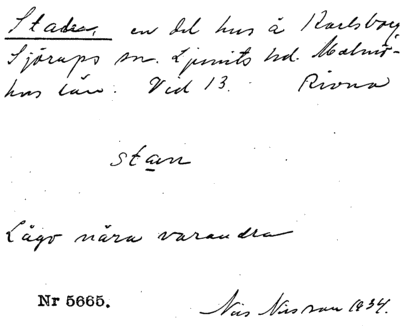 Staden, en del hus å Karlsborg
Sjörups sn. Ljunits hd. Malmö-
hus län. Vid 13. Rivna
stan
Lågo nära varandra
Nr 5665.
Nils Nilsson 1934.